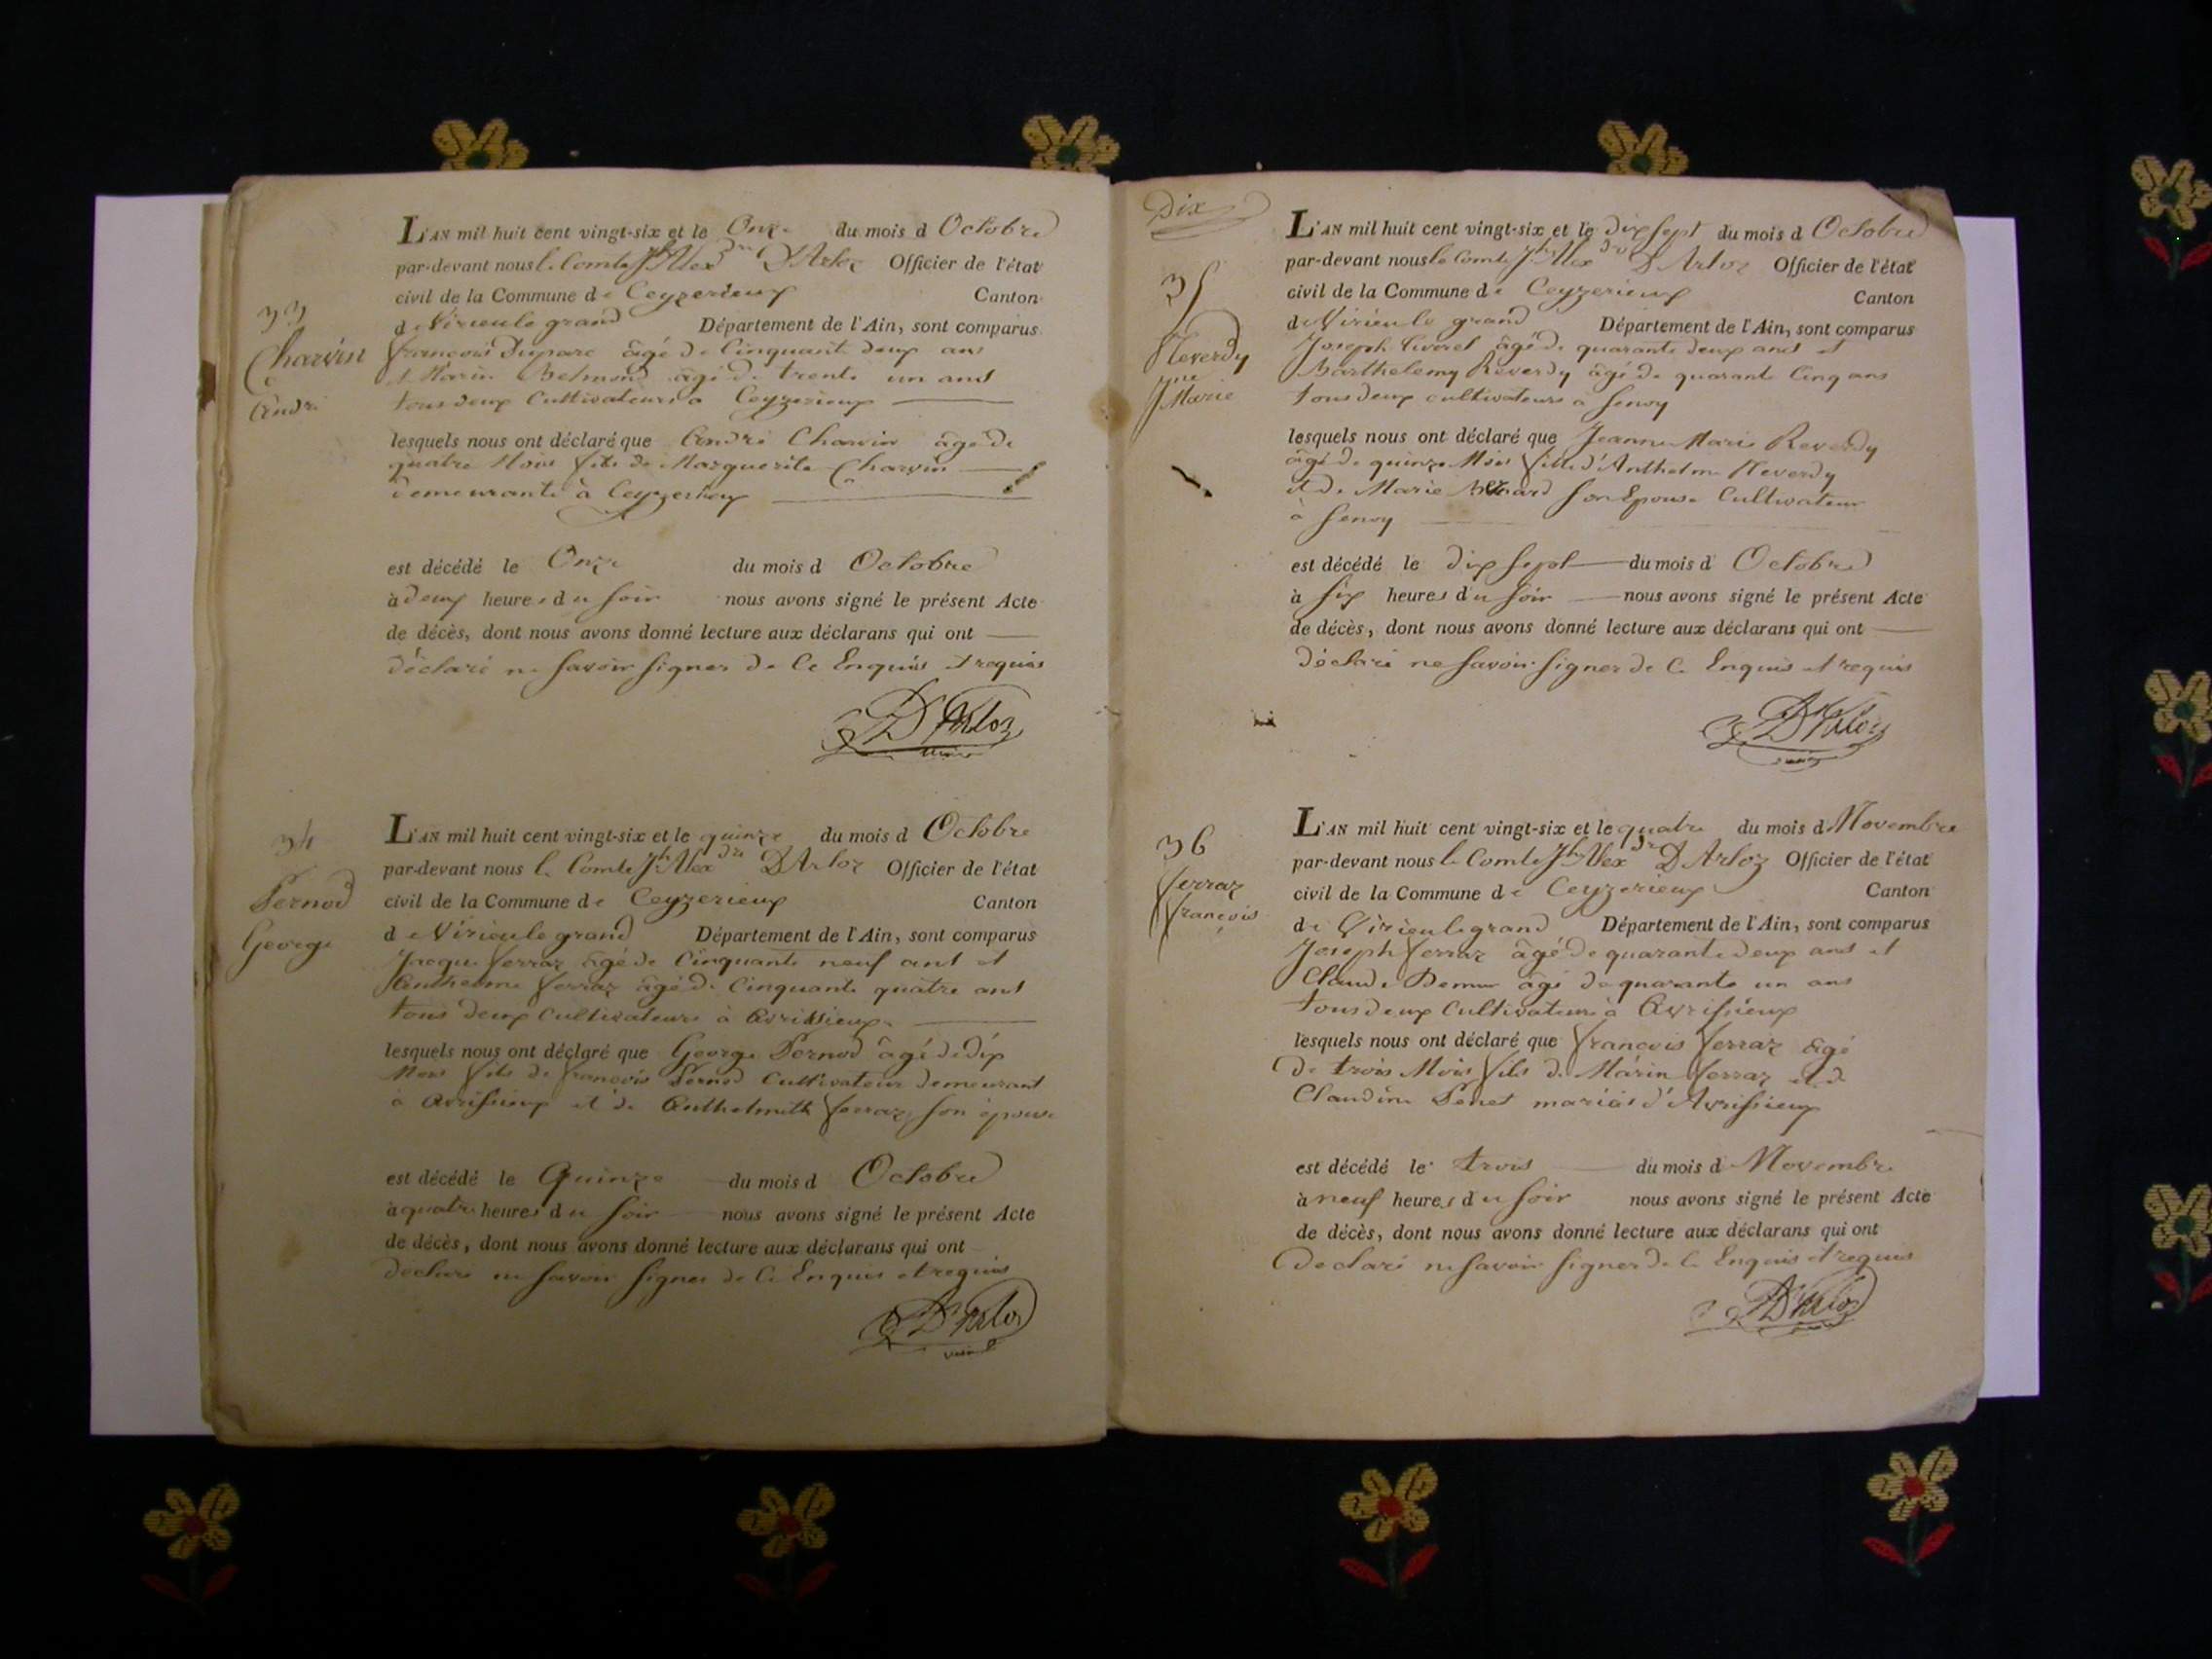 33
Charvin
André
L'AN mil huit cent vingt-six et le Onze du mois d Octobre
par-devant nous le Comte Jh Alexdre D'Arloz Officier de l'état
civil de la Commune de Ceyzerieux Canton
de Virieu le grand Département de l'Ain, sont comparus
françois Duparc âgé de Cinquante deux ans
et Marin âgé de trente un ans
tous deux Cultivateurs a Ceyzerieux
lesquels nous ont déclaré que André Charvin âgé de
quatre Mois fils de Marguerite Charvin
demeurante à Ceyzerieux
est décédé le Onze du mois d Octobre
à deux heures du soir nous avons signé le présent Acte
de décès, dont nous avons donné lecture aux déclarans qui ont
déclaré ne savoir signer de Ce Enquis et requis
D'Arloz
34
Pernod
George
L'AN mil huit cent vingt-six et le quinze du mois d Octobre
par-devant nous le Comte Jh Alexdre D'Arloz Officier de l'état
civil de la Commune de Ceyzerieux Canton
de Virieu le grand Département de l'Ain, sont comparus
Jacque ferraz âgé de Cinquante neuf ans et
Anthelme ferraz âgé de Cinquante quatre ans
tous deux Cultivateurs à Avrissieux
lesquels nous ont déclaré que George Pernod âgé de dix
Mois fils de françois Pernod Cultivateur demeurant
à Avrissieux et de Anthelmette ferraz son épouse
est décédé le Quinze du mois d Octobre
à quatre heures du soir nous avons signé le présent Acte
de décès, dont nous avons donné lecture aux déclarans qui ont
déclaré ne savoir signer de Ce Enquis et requis
D'Arloz
Dix
35
Reverdy
Jne Marie
L'AN mil huit cent vingt-six et le dix sept du mois d Octobre
par-devant nous le Comte Jh Alexdre D'Arloz Officier de l'état
civil de la Commune de Ceyzerieux Canton
de Virieu le grand Département de l'Ain, sont comparus
Joseph âgé de quarante deux ans et
Barthelemy Reverdy âgé de quarante Cinq ans
tous deux cultivateurs à Senoy
lesquels nous ont déclaré que Jeanne Marie Reverdy
âgé de quinze Mois fille d'Anthelme Reverdy
et de Marie son Epouse Cultivateur
à Senoy
est décédé le dix sept du mois d Octobre
à six heures du soir nous avons signé le présent Acte
de décès, dont nous avons donné lecture aux déclarans qui ont
déclaré ne savoir signer de Ce Enquis et requis
D'Arloz
36
ferraz
françois
L'AN mil huit cent vingt-six et le quatre du mois d Novembre
par-devant nous le Comte Jh Alexdre D'Arloz Officier de l'état
civil de la Commune de Ceyzerieux Canton
de Virieu le grand Département de l'Ain, sont comparus
Joseph ferraz âgé de quarante deux ans et
Claude Demur âgé de quarante un ans
tous deux Cultivateurs à Avrissieux
lesquels nous ont déclaré que françois ferraz âgé
de trois Mois fils de Marin ferraz et de
Claudine Penet mariés d'Avrissieux
est décédé le trois du mois d Novembre
à neuf heures du soir nous avons signé le présent Acte
de décès, dont nous avons donné lecture aux déclarans qui ont
Déclaré ne savoir signer de Ce Enquis et requis
D'Arloz